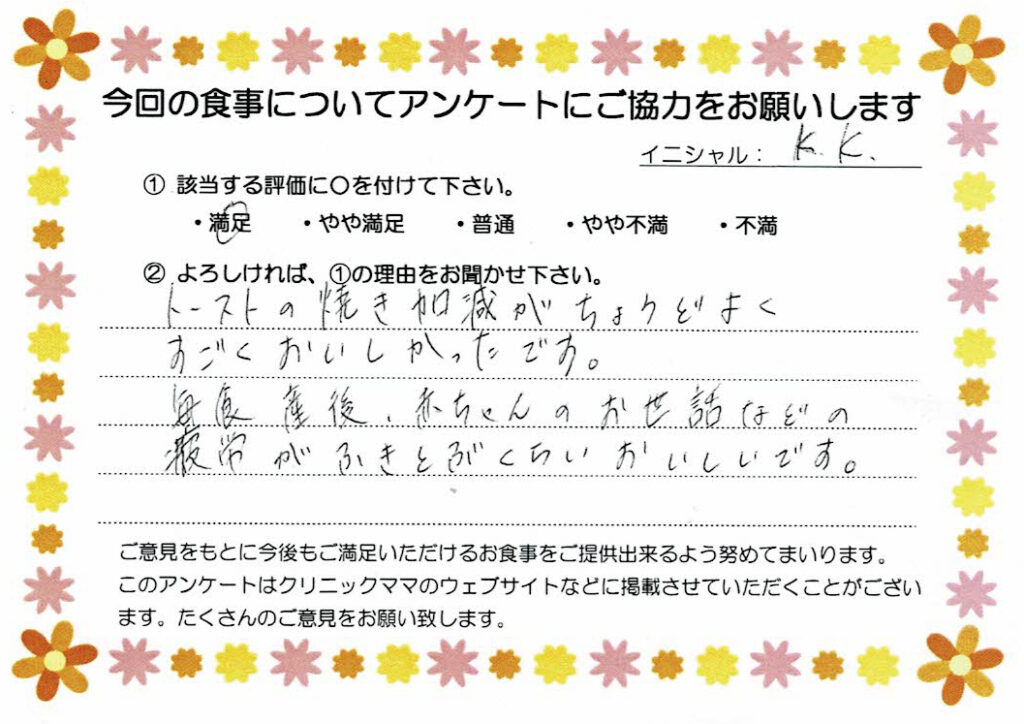 今回の食事についてアンケートにご協力をお願いします
イニシャル： K. K.
① 該当する評価に○を付けて下さい。
・満足 ・やや満足 ・普通 ・やや不満 ・不満
② よろしければ、①の理由をお聞かせ下さい。
トーストの焼き加減がちょうどよく
すごくおいしかったです。
毎食産後、赤ちゃんのお世話などの
疲労がふきとぶくらいおいしいです。
ご意見をもとに今後もご満足いただけるお食事をご提供出来るよう努めてまいります。
このアンケートはクリニックママのウェブサイトなどに掲載させていただくことがござい
ます。たくさんのご意見をお願い致します。